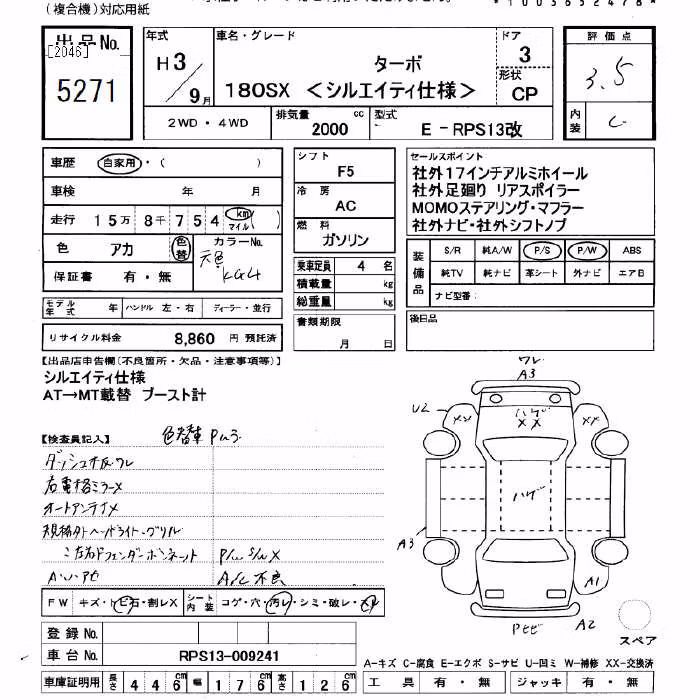 (複合機)対応用紙
*1003652478*
出品No. [2046] 5271
年式 H3/9月
車名・グレード ターボ
180SX <シルエイティ仕様>
ドア 3
形状 CP
評価点 3.5
内装 C
2WD・4WD
排気量 2000 cc
型式 E-RPS13改
車歴 自家用・( )
車検 年 月
走行 15万8千754 km マイル( )
色 アカ 色替 カラーNo. 元色 KG4
保証書 有・無
モデル年式 年 ハンドル 左・右 ディーラー・並行
リサイクル料金 8,860 円 預託済
シフト F5
冷房 AC
燃料 ガソリン
乗車定員 4 名
積載量 kg
総重量 kg
書類期限 月 日
セールスポイント
社外17インチアルミホイール
社外足廻り リアスポイラー
MOMOステアリング・マフラー
社外ナビ・社外シフトノブ
装備品 S/R 純A/W P/S P/W ABS
純TV 純ナビ 革シート 外ナビ エアB
ナビ型番:
後日品
【出品店申告欄(不良箇所・欠品・注意事項等)】
シルエイティ仕様
AT→MT載替 ブースト計
【検査員記入】 色替車
ダッシュ
オートアンテナメ
規格外ヘッドライト・グリル
フェンダーボンネット P/W S/W X
A/C不良
FW キズ・トビ石・割レX シート内装 コゲ・穴・汚レ・シミ・破レ・スレ
登録No.
車台No. RPS13-009241
車庫証明用 長さ 446 cm 幅 176 cm 高さ 126 cm
ワレ
A3
U2
XX
ハゲ
XX
XX
ハゲ
A3
A1
A2
スペア
A-キズ C-腐食 E-エクボ S-サビ U-凹ミ W-補修 XX-交換済
工具 有・無 ジャッキ 有・無